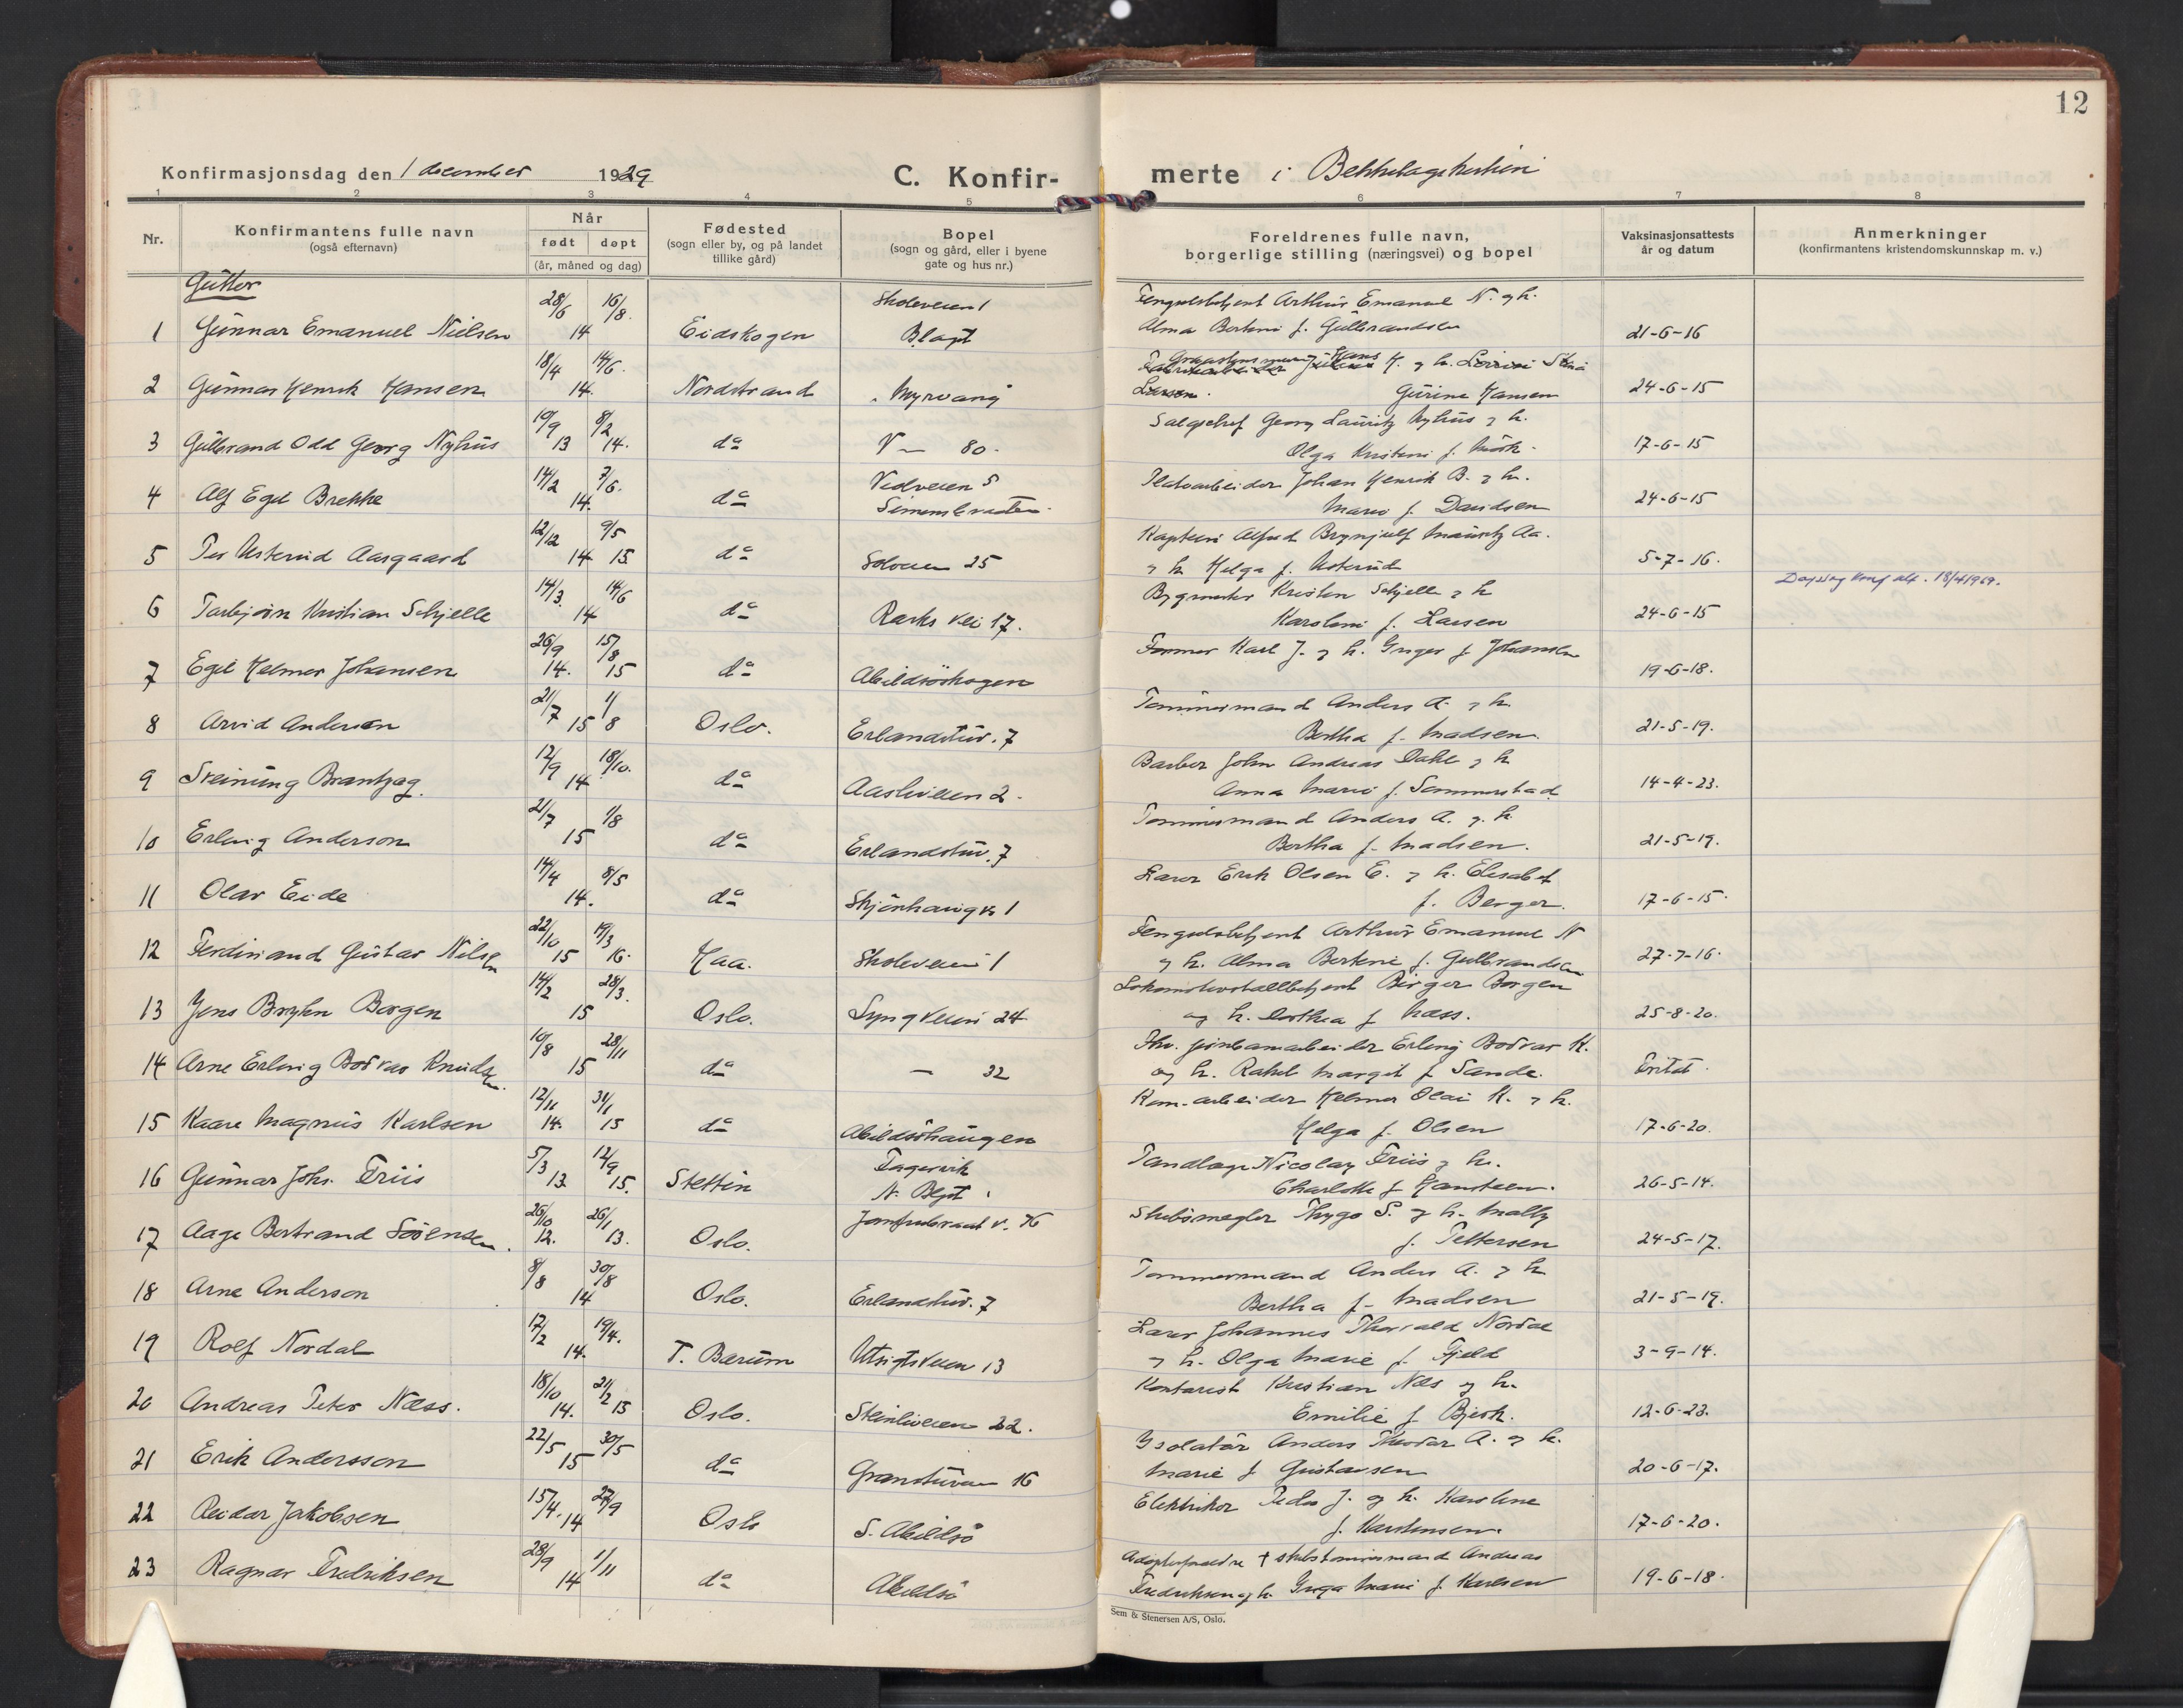 12
Konfirmasjonsdag den 1 december 1929 C. Konfir- merte i Bekkelagshuskirken
1 2 3 4 5 6 7 8
Nr. Konfirmantens fulle navn (også efternavn) Når født døpt (år, måned og dag) Fødested (sogn eller by, og på landet tillike gård) Bopel (sogn og gård, eller i byene gate og hus nr.) Foreldrenes fulle navn, borgerlige stilling (næringsvei) og bopel Vaksinasjonsattests år og datum Anmerkninger (konfirmantens kristendomskunnskap m. v.)
Gutter
28/6 16/8. Skoleveien 1 Fengselsbetjent Arthur Emanuel N. og h.
1 Gunnar Emanuel Nielsen 14 Eidskogen Blagt Alma Bertine f. Gulbrandsen 21-6-16
18/4 14/6. Hans H. og h.
2 Gunnar Henrik Hansen 14. Nordstrand Myrvang Larsen. Gurine Hansen 24-6-15
19/9 8/2 Salgschef Georg Lauritz Nyhus og h.
3 Gulbrand Odd Georg Nyhus 13 14. do V — 80. Olga Kristine f. Mørk. 17-6-15
14/2 7/6. Vedveien 5 Platearbeider Johan Henrik B. og h.
4 Alf Egil Brekke 14. do Simensbraaten. Marie f. Davidsen 24-6-15
12/12 9/5 Kaptein Alfred Brynjulf Mauritz Aa.
5 Per Usterud Aasgaard 14 15. do Solveien 25 og h. Helga f. Usterud 5-7-16.
14/3. 14/6 Bygmester Kristen Schjelle og h
6 Torbjørn Kristian Schjelle 14 do Raeks vei 17. Karoline f. Larsen 24-6-15 18/4 1969.
26/9 15/8 Former Karl J. og h. Inger f. Johansen
7 Egil Helmer Johansen 14. 15 do Abildsøskogen 19-6-18.
21/7 1/ Tømmermand Anders A. og h.
8 Arvid Andersen 15 8 Oslo. Erlandstuv. 7 Bertha f. Madsen. 21-5-19.
12/9 18/10. Barber John Andreas Dahl og h
9 Sveinung Brantzag. 14 do Aasliveien 2. Anna Marie f. Sommerstad. 14-4-23.
21/7 1/8 Tømmermand Anders A. og h
10 Erling Anderson 15 do Erlandstuv. 7 Bertha f. Madsen. 21-5-19.
14/4 8/5 Lærer Erik Olsen E. og h. Elisabet
11 Olav Eide 14. do Skjønhaugv. 1 f. Berger. 17-6-15.
22/10 19/3 Fengselsbetjent Arthur Emanuel N
12 Ferdinand Gustav Nilsen 15 16. Haa. Skoleveien 1 og h. Alma Bertine f. Gulbrandsen 27-7-16.
14/2 28/3. Lokomotivstallbetjent Birger Borgen
13 Jens Bryhn Borgen 15 Oslo. Lyngveien 24 og h. Dorthea f Næss. 25-8-20.
10/8 28/11 Erling Bodvar K.
14 Arne Erling Bodvar Knudsen. 15 do — 32 og h. Rakel Margit f Sande. Fritat.
12/11 31/1 Kom.-arbeider Helmer Olai K. og h.
15 Kaare Magnus Karlsen 14. 15 do Abildsøhaugen Helga f. Olsen 17-6-20.
5/3 12/9 Fagervik Tandlæge Nicolay Friis og h.
16 Gunnar Johs. Friis 13. 15. Stettin N. Blgt. Charlotte f Hansteen. 26-5-14.
26/10 26/1 Jomfrubraat v. 76 Skibsmægler Thygo S. og h. Mally
17 Aage Bertrand Sørensen. 12. 13. Oslo. f. Pettersen 24-5-17.
8/8 30/8 Tømmermand Anders A. og h
18 Arne Anderson 14 Oslo. Erlandstuv. 7 Bertha f. Madsen 21-5-19.
17/2 19/4. Lærer Johannes Thorvald Nordal
19 Rolf Nordal 14. V. Bærum Utsigtsveien 13 og h. Olga Marie f. Fjeld 3-9-14.
18/10 21/2 Kontorist Kristian Næs og h.
20 Andreas Peter Næss. 14. 15 Oslo. Steinliveien 22. Emilie f Bjerk. 12-6-23.
22/5 30/5 Isolatør Anders Theodor A. og h.
21 Erik Andersson 15 do Granstuveien 16 Marie f Gustavsen 20-6-17.
15/4. 27/9 Elektriker Peder J. og h. Karoline
22 Reidar Jakobsen 14 Oslo S. Abildsø f. Karstensen. 17-6-20.
28/9 1/11 Adoptivforeldre † skibstømmermand Andreas
23 Ragnar Fredriksen 14 do Abildsø Fredriksen og h. Inga Marie f. Karlsen 19-6-18.
Sem & Stenersen A/S, Oslo.